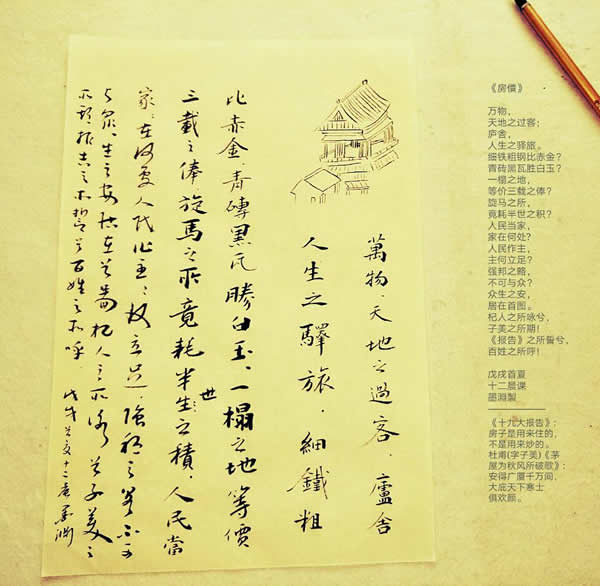 萬物、天地之過客、廬舍
人生之驛旅、細鐵粗
比赤金、青磚黑瓦勝白玉、一榻之地等價
三載之俸旋馬之所竟耗半生世之積、人民當
家、在何處人民作主、何立足、強邦之略不可
与众、生之安居在首啚杞人之所咏兮子美之
所期报告之所誓兮百姓之所呼
《房價》
万物，
天地之过客；
庐舍，
人生之驿旅。
细铁粗钢比赤金？
青砖黑瓦胜白玉？
一榻之地，
等价三载之俸？
旋马之所，
竟耗半世之积？
人民当家，
家在何处？
人民作主，
主何立足？
强邦之略，
不可与众？
众生之安，
居在首图。
杞人之所咏兮，
子美之所期！
《报告》之所誓兮，
百姓之所呼！
戊戌首夏
十二晨课
墨淵製
《十九大报告》：
房子是用来住的，
不是用来炒的。
杜甫(字子美)《茅
屋为秋风所破歌》：
安得广厦千万间，
大庇天下寒士
俱欢颜。